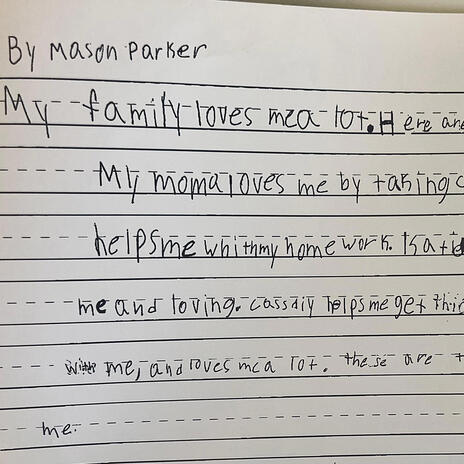 By Mason Parker
My family loves me a lot. Here are
My moma loves me by taking c
helps me whith my home work.
me and loving. Cassdiy helps me get thi
with me, and loves me a lot. these are t
me.